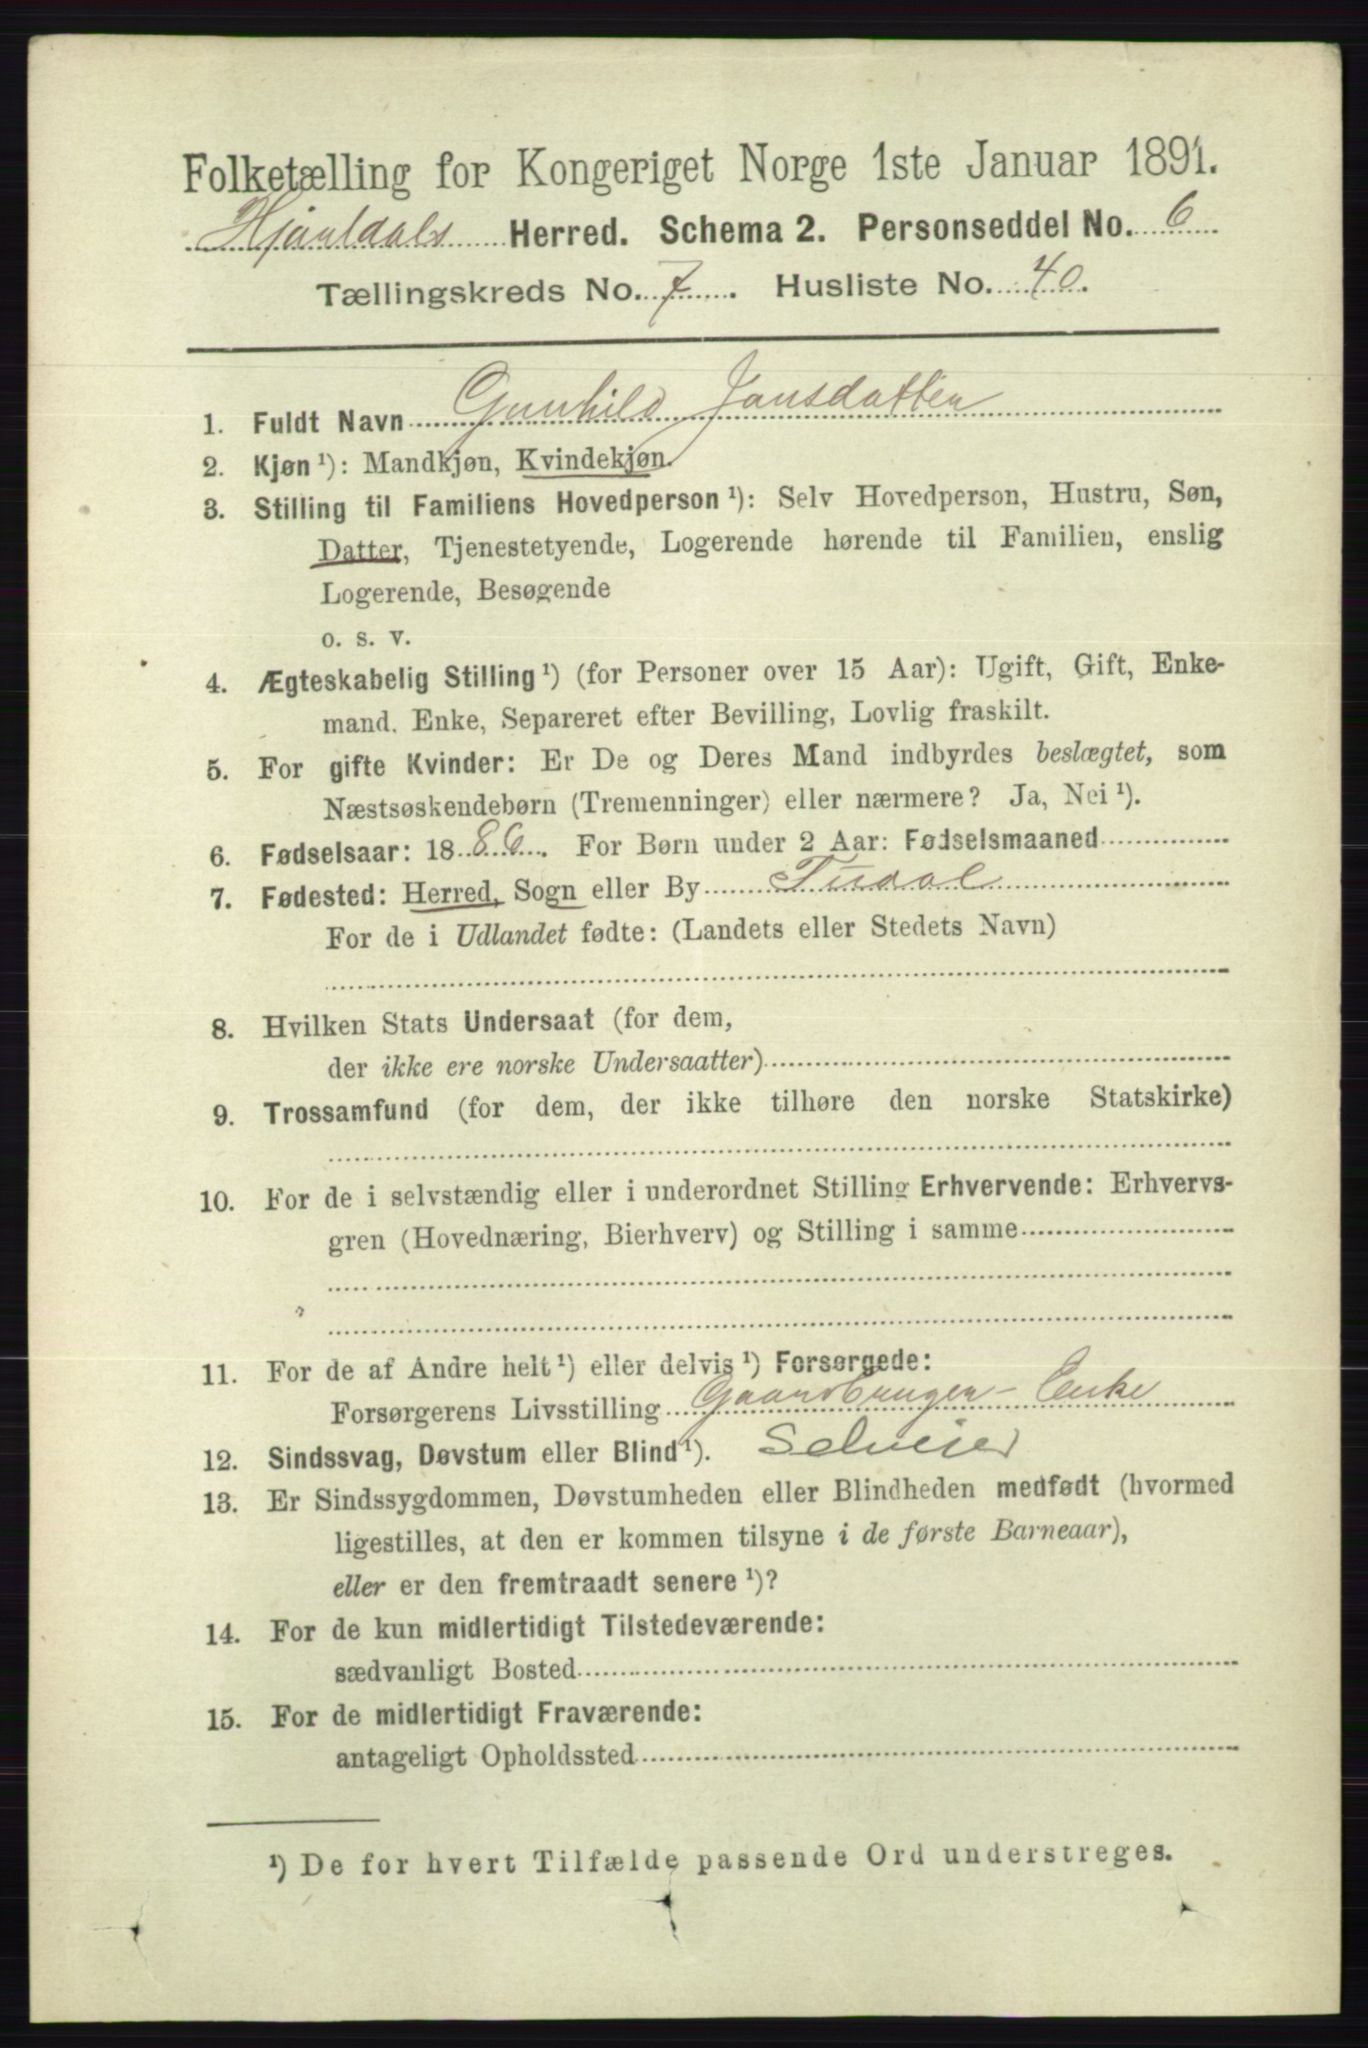 Folketælling for Kongeriget Norge 1ste Januar 1891.
Hjartdals Herred. Schema 2. Personseddel No. 6
Tællingskreds No. 7. Husliste No. 40.
1. Fuldt Navn Gunhild Jonsdatter
2. Kjøn¹): Mandkjøn, Kvindekjøn.
3. Stilling til Familiens Hovedperson¹): Selv Hovedperson, Hustru, Søn,
Datter, Tjenestetyende, Logerende hørende til Familien, enslig
Logerende, Besøgende
o. s. v.
4. Ægteskabelig Stilling¹) (for Personer over 15 Aar): Ugift, Gift, Enke-
mand. Enke, Separeret efter Bevilling, Lovlig fraskilt.
5. For gifte Kvinder: Er De og Deres Mand indbyrdes beslægtet, som
Næstsøskendebørn (Tremenninger) eller nærmere? Ja, Nei¹).
6. Fødselsaar: 1886. For Børn under 2 Aar: Fødselsmaaned
7. Fødested: Herred, Sogn eller By Tudal
For de i Udlandet fødte: (Landets eller Stedets Navn)
8. Hvilken Stats Undersaat (for dem,
der ikke ere norske Undersaatter)
9. Trossamfund (for dem, der ikke tilhøre den norske Statskirke)
10. For de i selvstændig eller i underordnet Stilling Erhvervende: Erhvervs-
gren (Hovednæring, Bierhverv) og Stilling i samme
11. For de af Andre helt¹) eller delvis¹) Forsørgede:
Forsørgerens Livsstilling Gaardbruger-Enke
12. Sindssvag, Døvstum eller Blind¹). Selveier
13. Er Sindssygdommen, Døvstumheden eller Blindheden medfødt (hvormed
ligestilles, at den er kommen tilsyne i de første Barneaar),
eller er den fremtraadt senere¹)?
14. For de kun midlertidigt Tilstedeværende:
sædvanligt Bosted
15. For de midlertidigt Fraværende:
antageligt Opholdssted
¹) De for hvert Tilfælde passende Ord understreges.